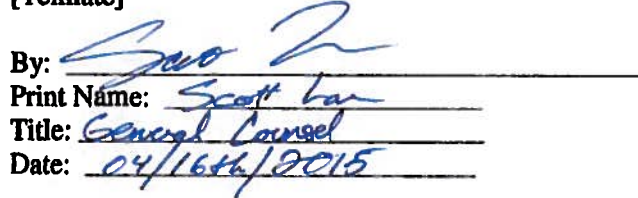 By:
Print Name: Scott
Title: General Counsel
Date: 04/16th/2015